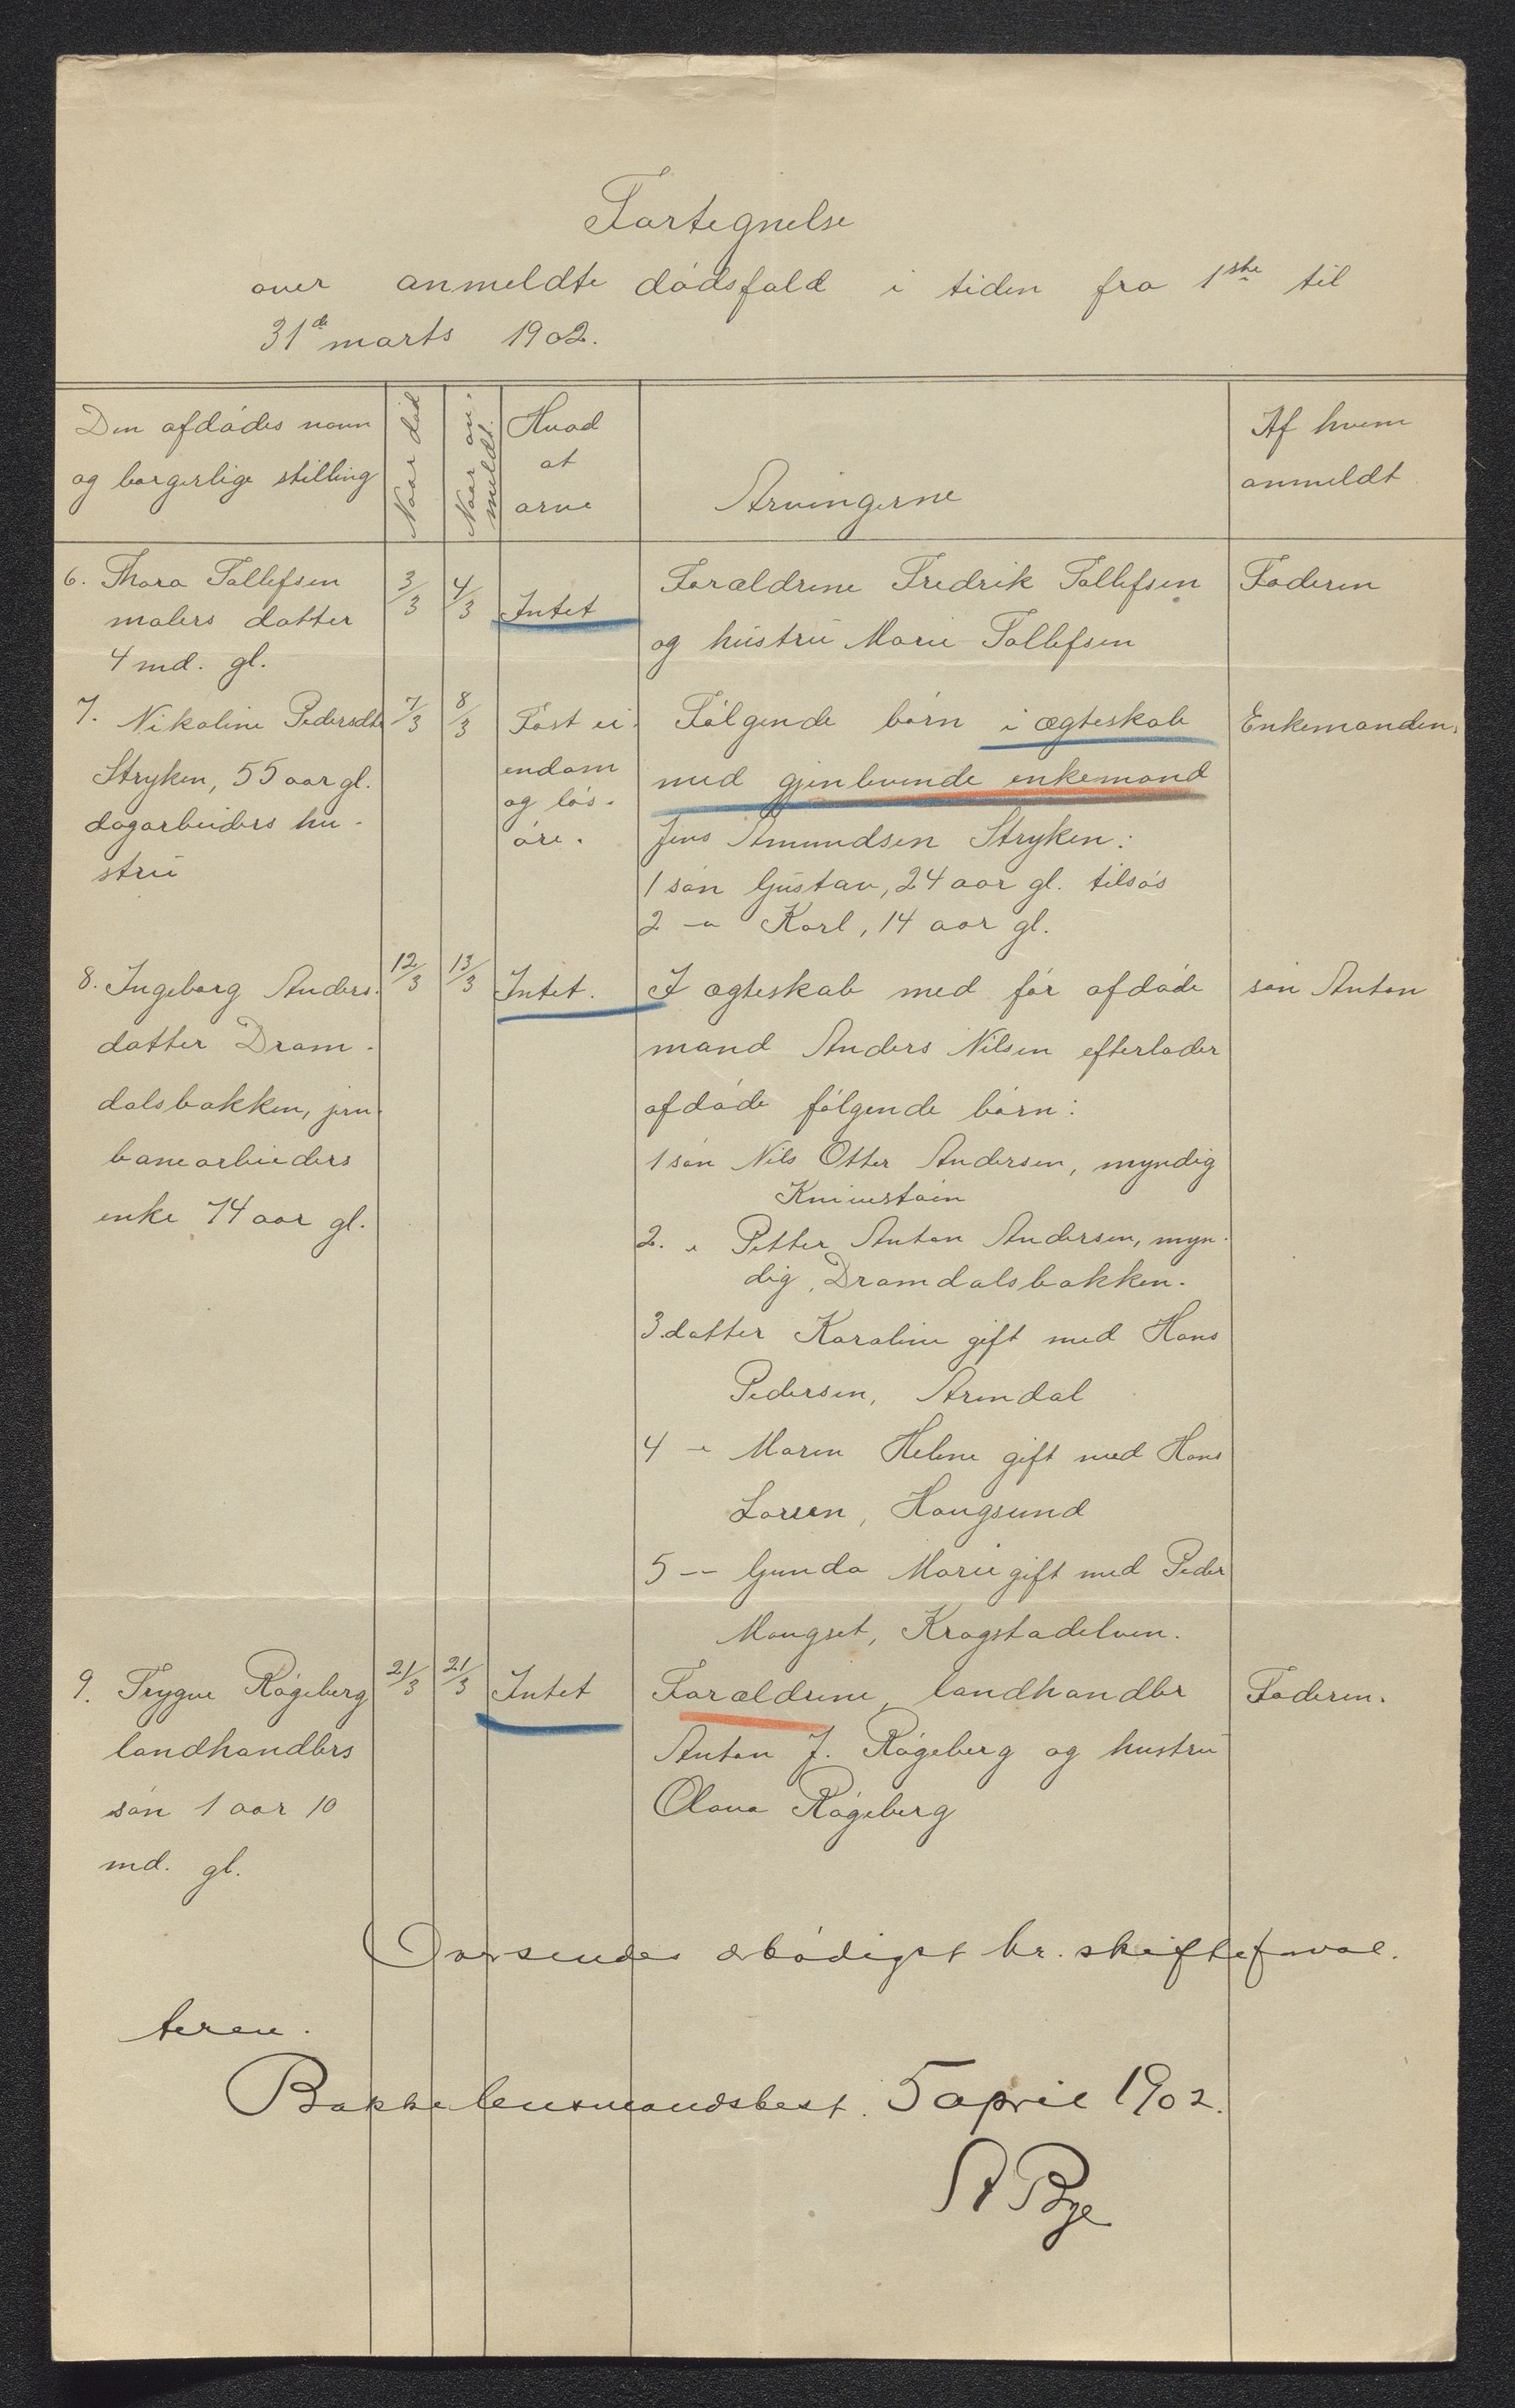 Fortegnelse
over anmeldte dødsfald i tiden fra 1ste til
31de marts 1902.
Den afdødes navn
og borgerlige stilling
Naar død
Naar an-
meldt.
Hvad
at
arve
Arvingerne
Af hvem
anmeldt
6. Thora Tollefsen
malers datter
4 md. gl.
3/3
4/3
Intet
Forældrene Fredrik Tollefsen
og hustru Marie Tollefsen
Faderen
7. Nikoline Pedersdtr
Stryken, 55 aar gl.
dagarbeiders hu-
stru
7/3
8/3
Fast ei-
endom
og løs-
øre.
Følgende børn i ægteskab
med gjenlevende enkemand
Jens Amundsen Stryken:
1 søn Gustav, 24 aar gl. tilsøs
2 -"- Karl, 14 aar gl.
Enkemanden.
8. Ingeborg Anders-
datter Dram-
dalsbakken, jern-
banearbeiders
enke 74 aar gl.
12/3
13/3
Intet.
I ægteskab med før afdøde
mand Anders Nilsen efterlader
afdøde følgende børn:
1 søn Nils Otter Andersen, myndig
Knivestøen
2. " Petter Anton Andersen, myn-
dig, Dramdalsbakken.
3. datter Karoline gift med Hans
Pedersen, Arendal
4 -"- Maren Helene gift med Hans
Larsen, Hougsund
5 -"- Gunda Marie gift med Peder
Mougset, Krogstadelven.
søn Anton
9. Trygve Røgeberg
landhandlers
søn 1 aar 10
md. gl.
21/3
21/3
Intet
Forældrene, landhandler
Anton J. Røgeberg og hustru
Olava Røgeberg
Faderen.
Oversendes ærbødigst hr. skifteforval-
teren.
Bakke lensmandsbest. 5 april 1902.
A Bye